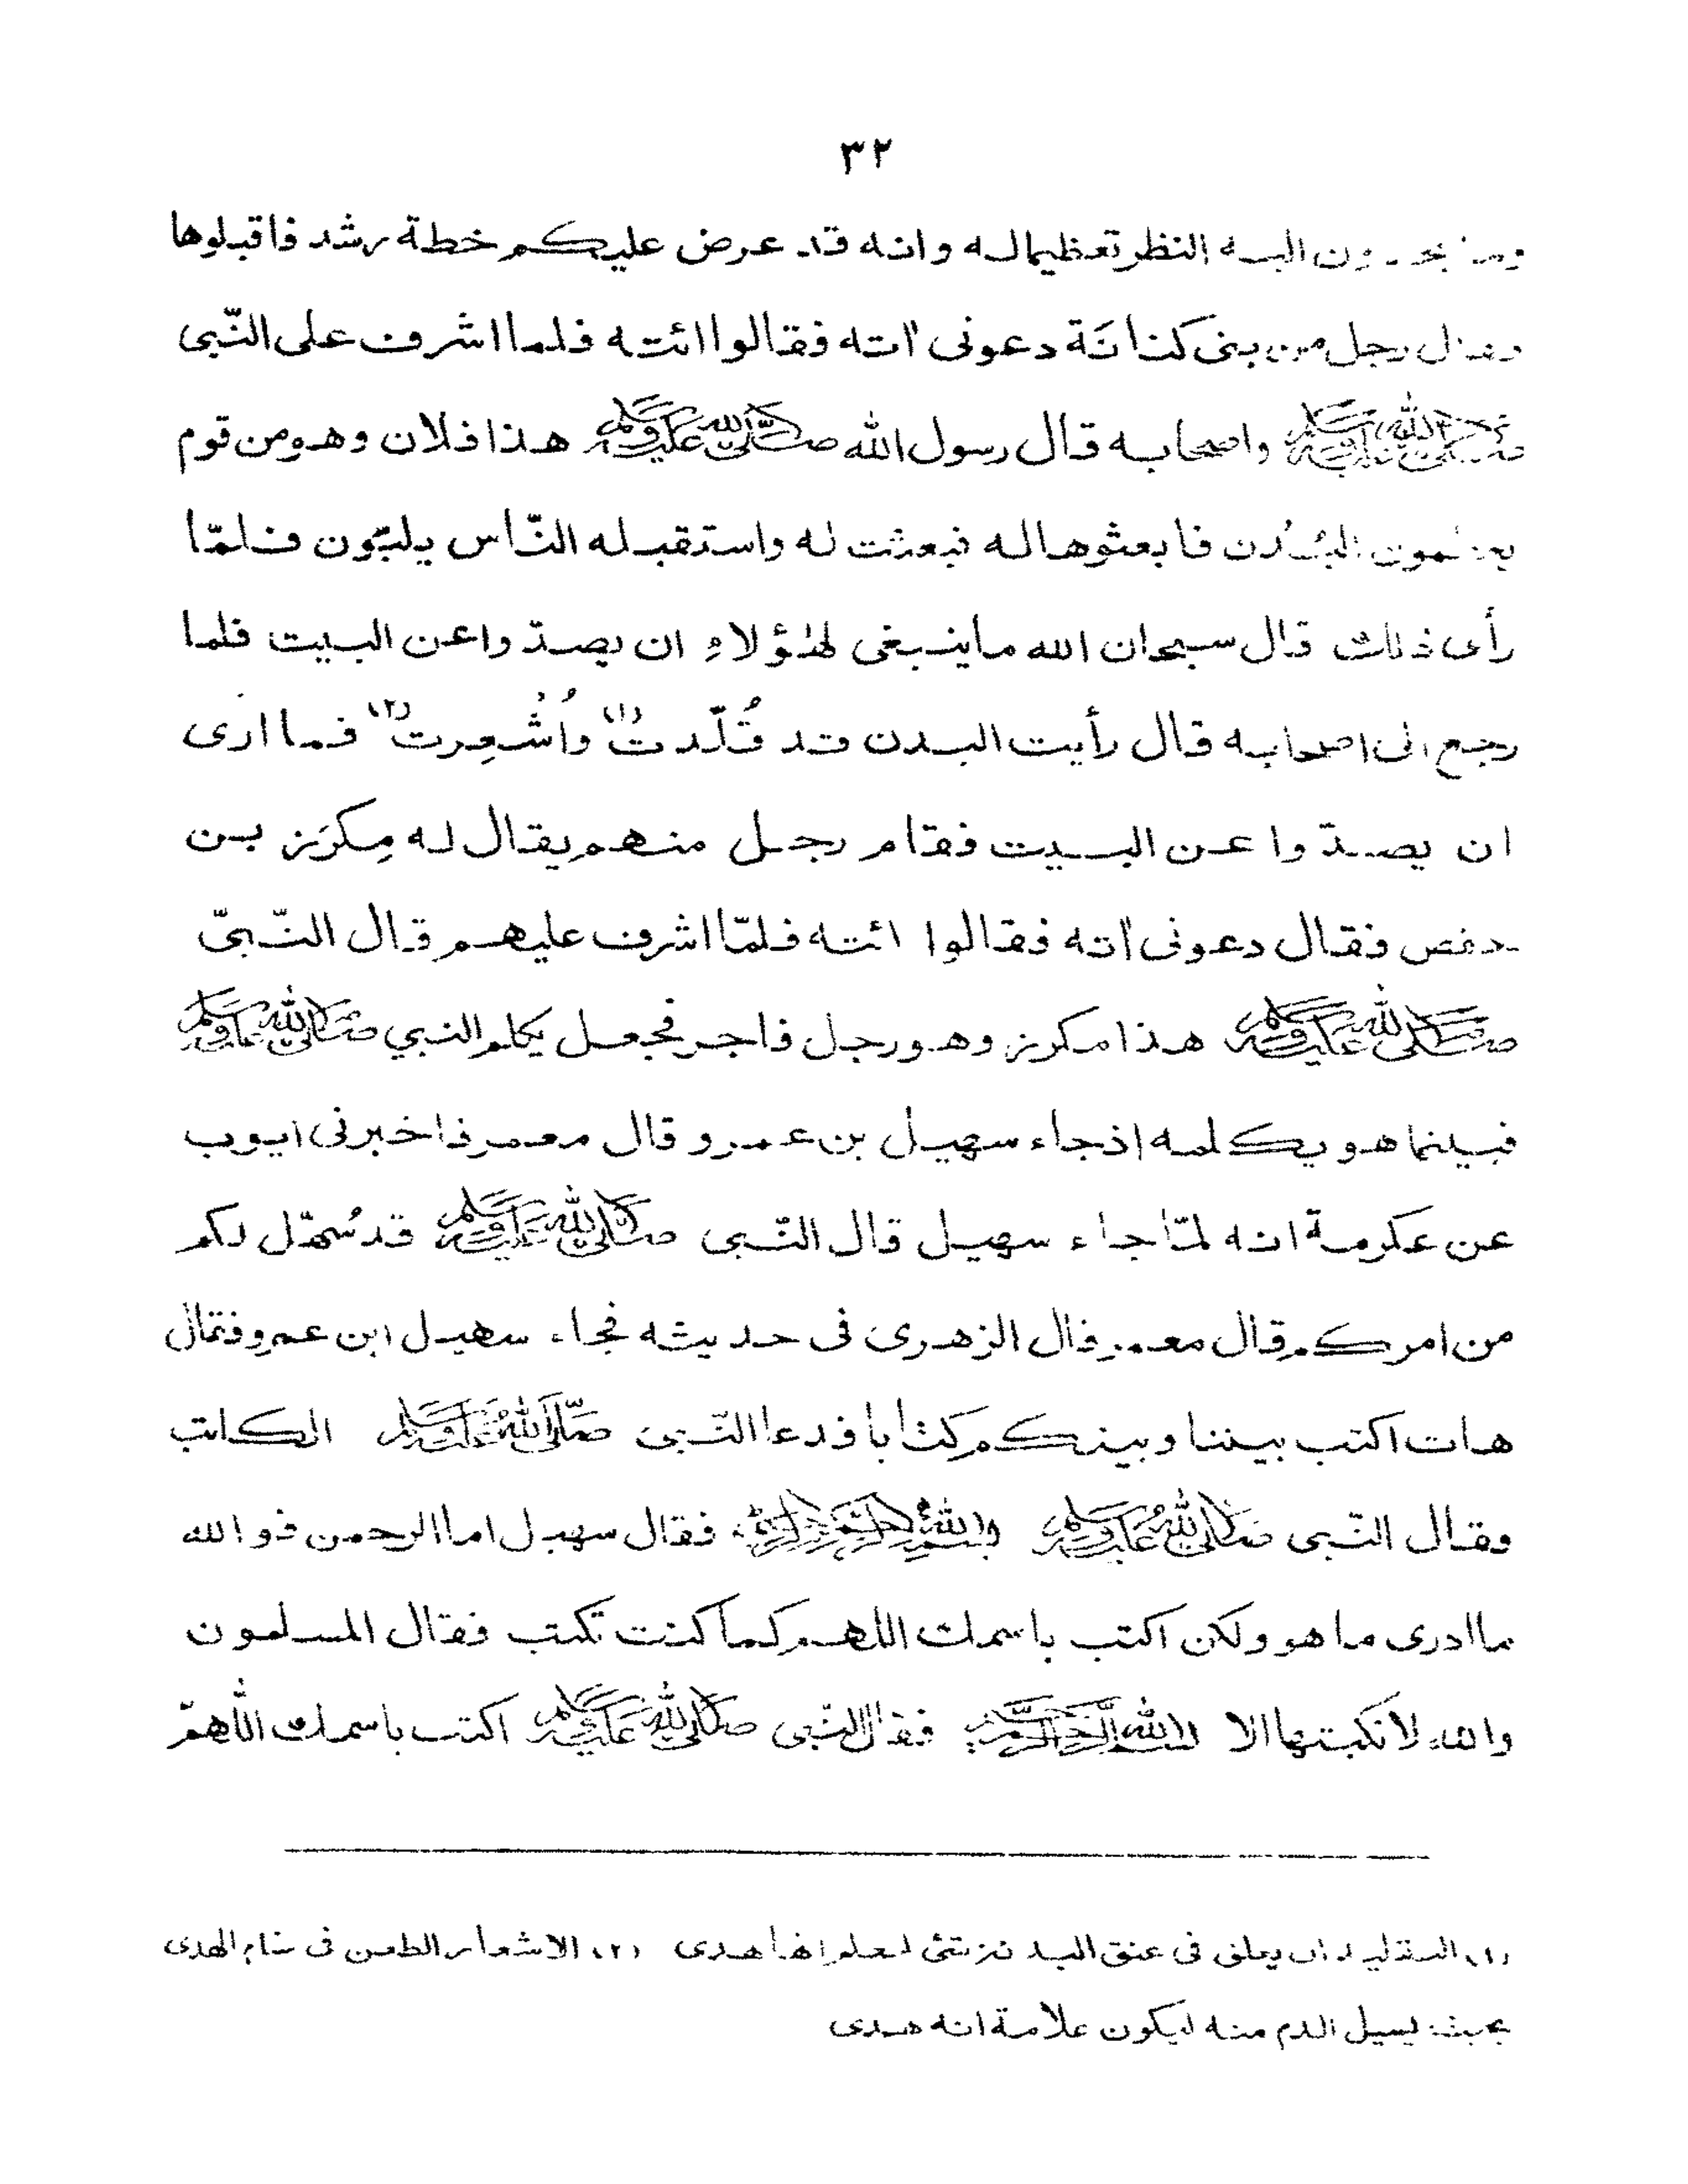 ٣٢
وما يحدون اليه النظر تعظيما له وانه قد عرض عليكم خطة رشد فاقبلوها
فقال رجل من بنى كنانَة دعونى اٰته فقالوا ائته فلما اشرف على النّبى
صلى الله عليه وسلم واصحابه قال رسول الله صلى الله عليه وسلم هذا فلان وهو من قوم
يعظمون البُدن فابعثوها له فبعثت له واستقبله النّاس يلبّون فلمّا
رأى ذلك قال سبحان الله ماينبغى لهٰؤلاءِ ان يصدّ واعن البيت فلما
رجع الى اصحابه قال رأيت البدن قد قُلّدتْ(١) واُشْعِرت(٢) فما ارٰى
ان يصدّ وا عن البيت فقام رجل منهم يقال له مِكرَز بن
حفص فقال دعونى اٰته فقالوا ائته فلمّا اشرف عليهم قال النّبىّ
صلى الله عليه وسلم هذا مكرز وهو رجل فاجر فجعل يكلم النبي صلى الله عليه وسلم
فبينما هو يكلمه اذجاء سهيل بن عمرو قال معمر فاخبرنى ايوب
عن عكرمة انه لمّا جاء سهيل قال النّبى صلى الله عليه وسلم قد سُهّل لكم
من امركم قال معمر قال الزهرى فى حديثه فجاء سهيل ابن عمرو فقال
هات اكتب بيننا وبينكم كتٰبا فدعا النّبى صلى الله عليه وسلم الكاتب
وقال النّبى صلى الله عليه وسلم بسم الله الرحمن الرحيم فقال سهيل اما الرحمن فوالله
ما ادرى ما هو ولكن اكتب باسمك اللهم كما كنت تكتب فقال المسلمون
والله لانكتبها الا بسم الله الرحمن الرحيم فقال النّبى صلى الله عليه وسلم اكتب باسمك اللّٰهمّ
(١) التقليد ان يعلق فى عنق البدنة شئ ليعلم انها هدى (٢) الاشعار الطعن فى سنام الهدى
بحيث يسيل الدم منه ليكون علامة انه هدى